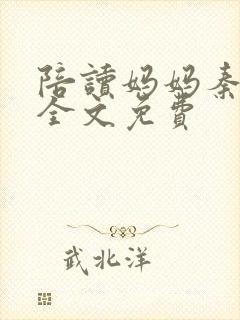 陪讀妈妈秦
全文免費
武北洋